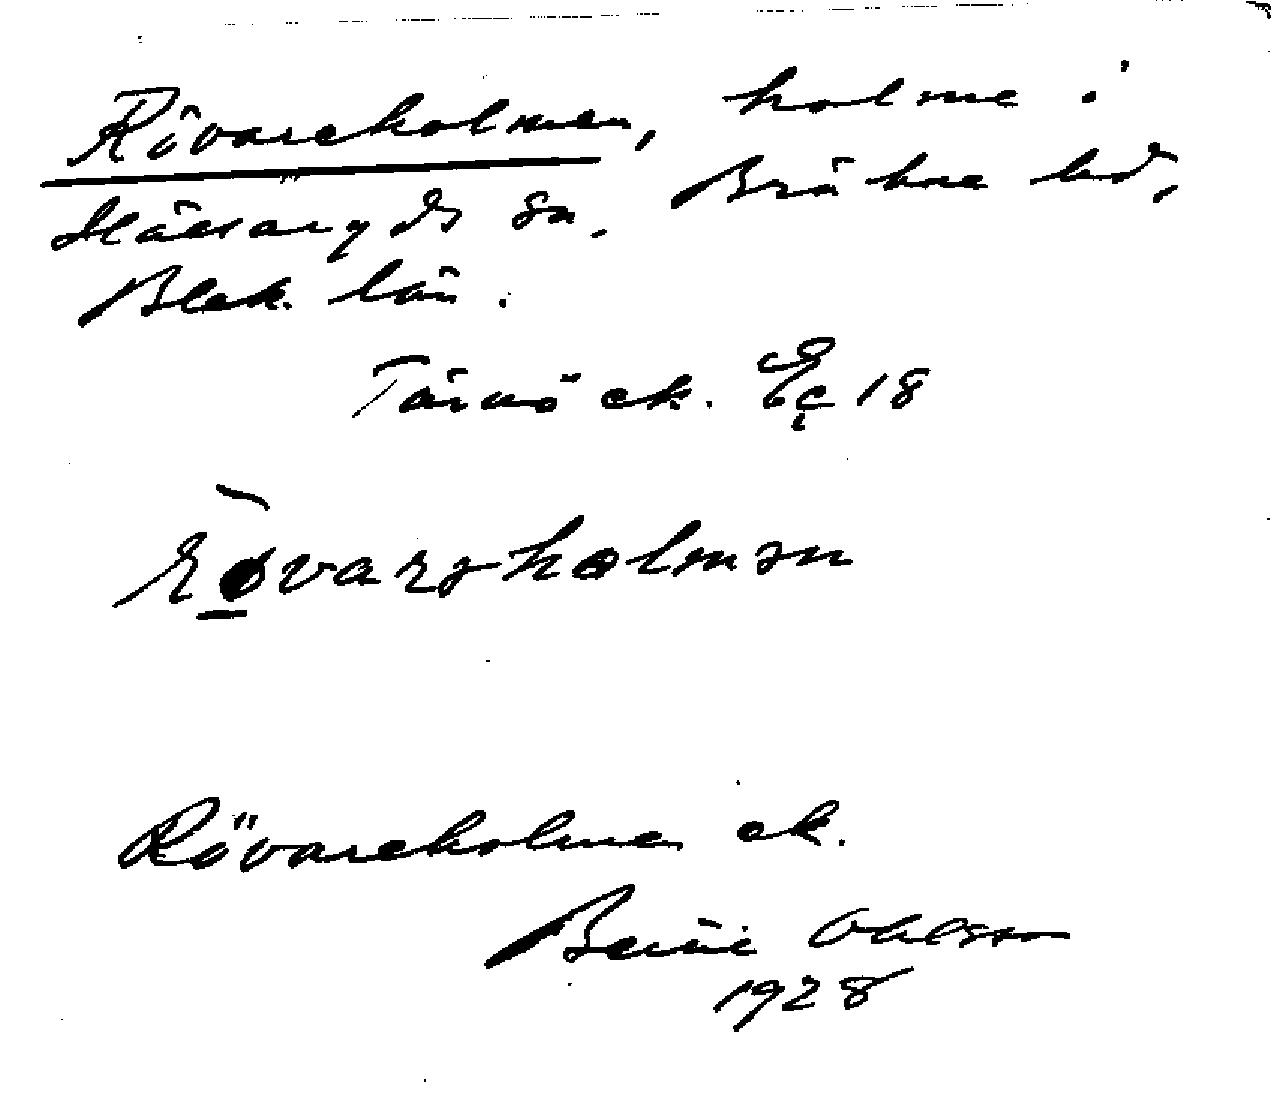 Rövareholmen, holme i
Hällaryds sn. Bräkne hd,
Blek. län.
Tärnö ek. Eç 18
Rövareholmen ek.
Bertil Ohlsson
1928